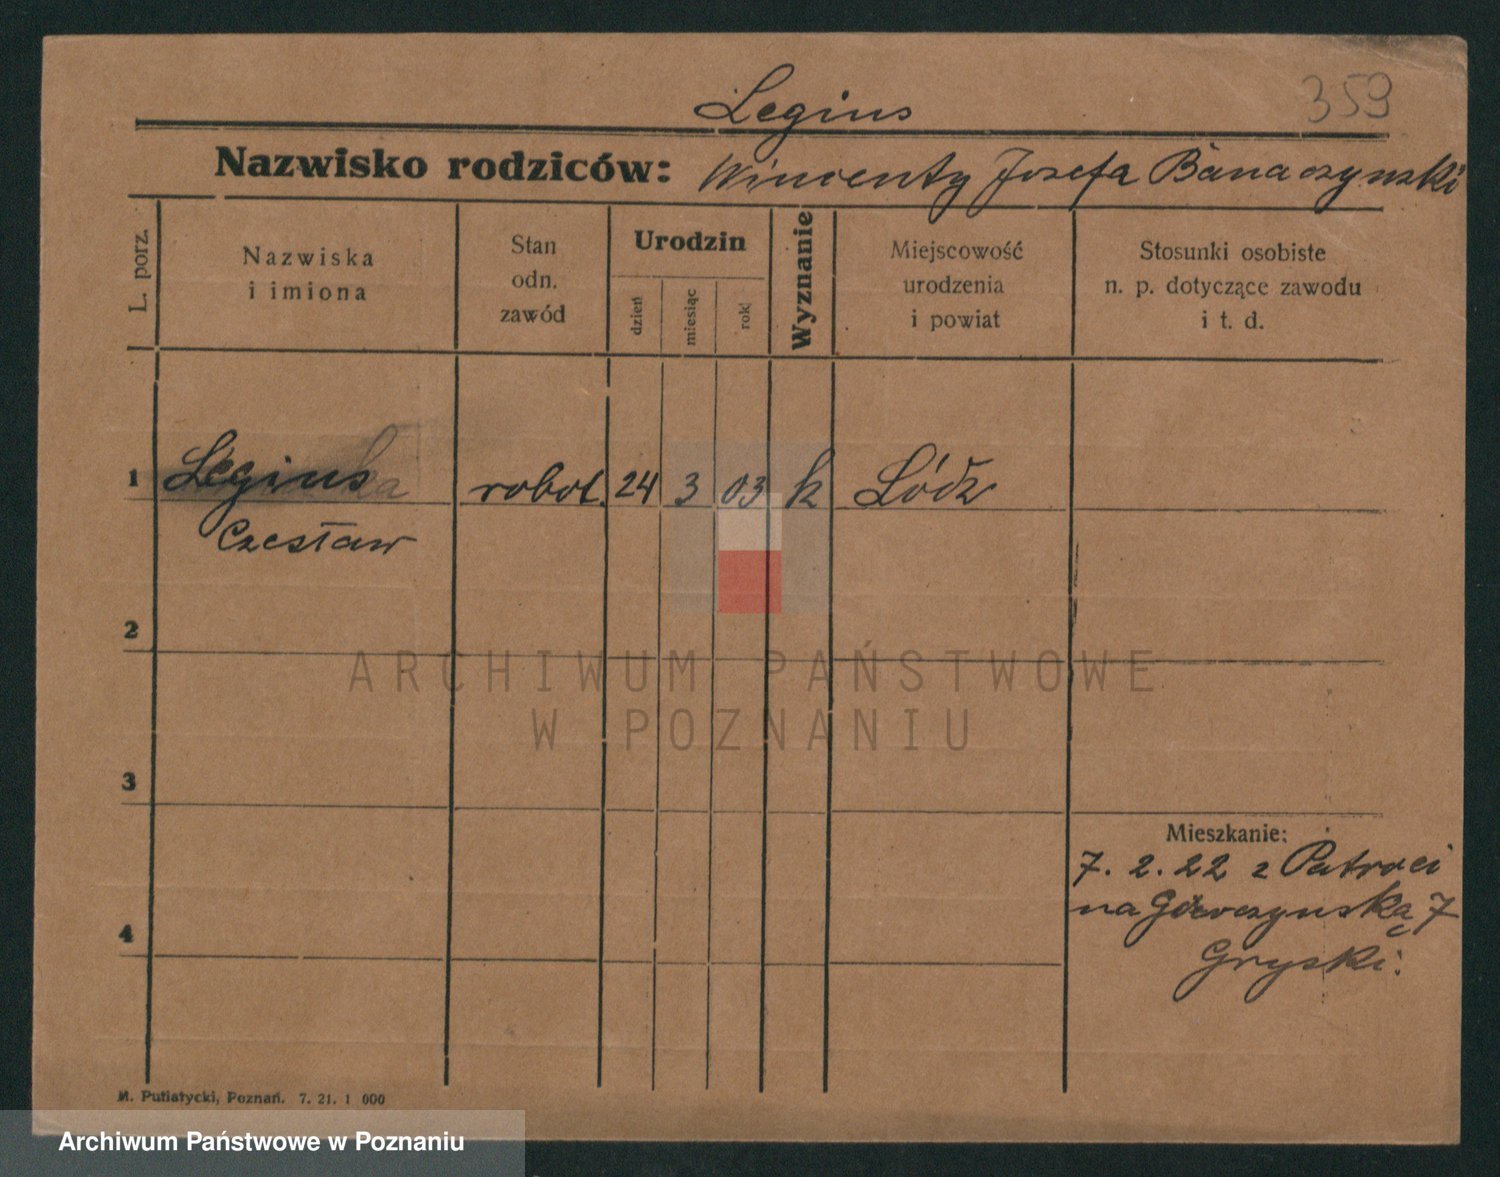 Legius
359
Nazwisko rodziców: Wincenty Josefa Banaczynski
L. porz.
Nazwiska
i imiona
Stan
odn.
zawód
Urodzin
dzień
miesiąc
rok
Wyznanie
Miejscowość
urodzenia
i powiat
Stosunki osobiste
n. p. dotyczące zawodu
i t. d.
1 Legius robot. 24 3 03 k Łódź
Czesław
2
ARCHIWUM PAŃSTWOWE
W POZNANIU
3
Mieszkanie:
7. 2. 22 z
na 7
4
Gryski.
M. Putiatycki, Poznań. 7. 21. 1 000
Archiwum Państwowe w Poznaniu